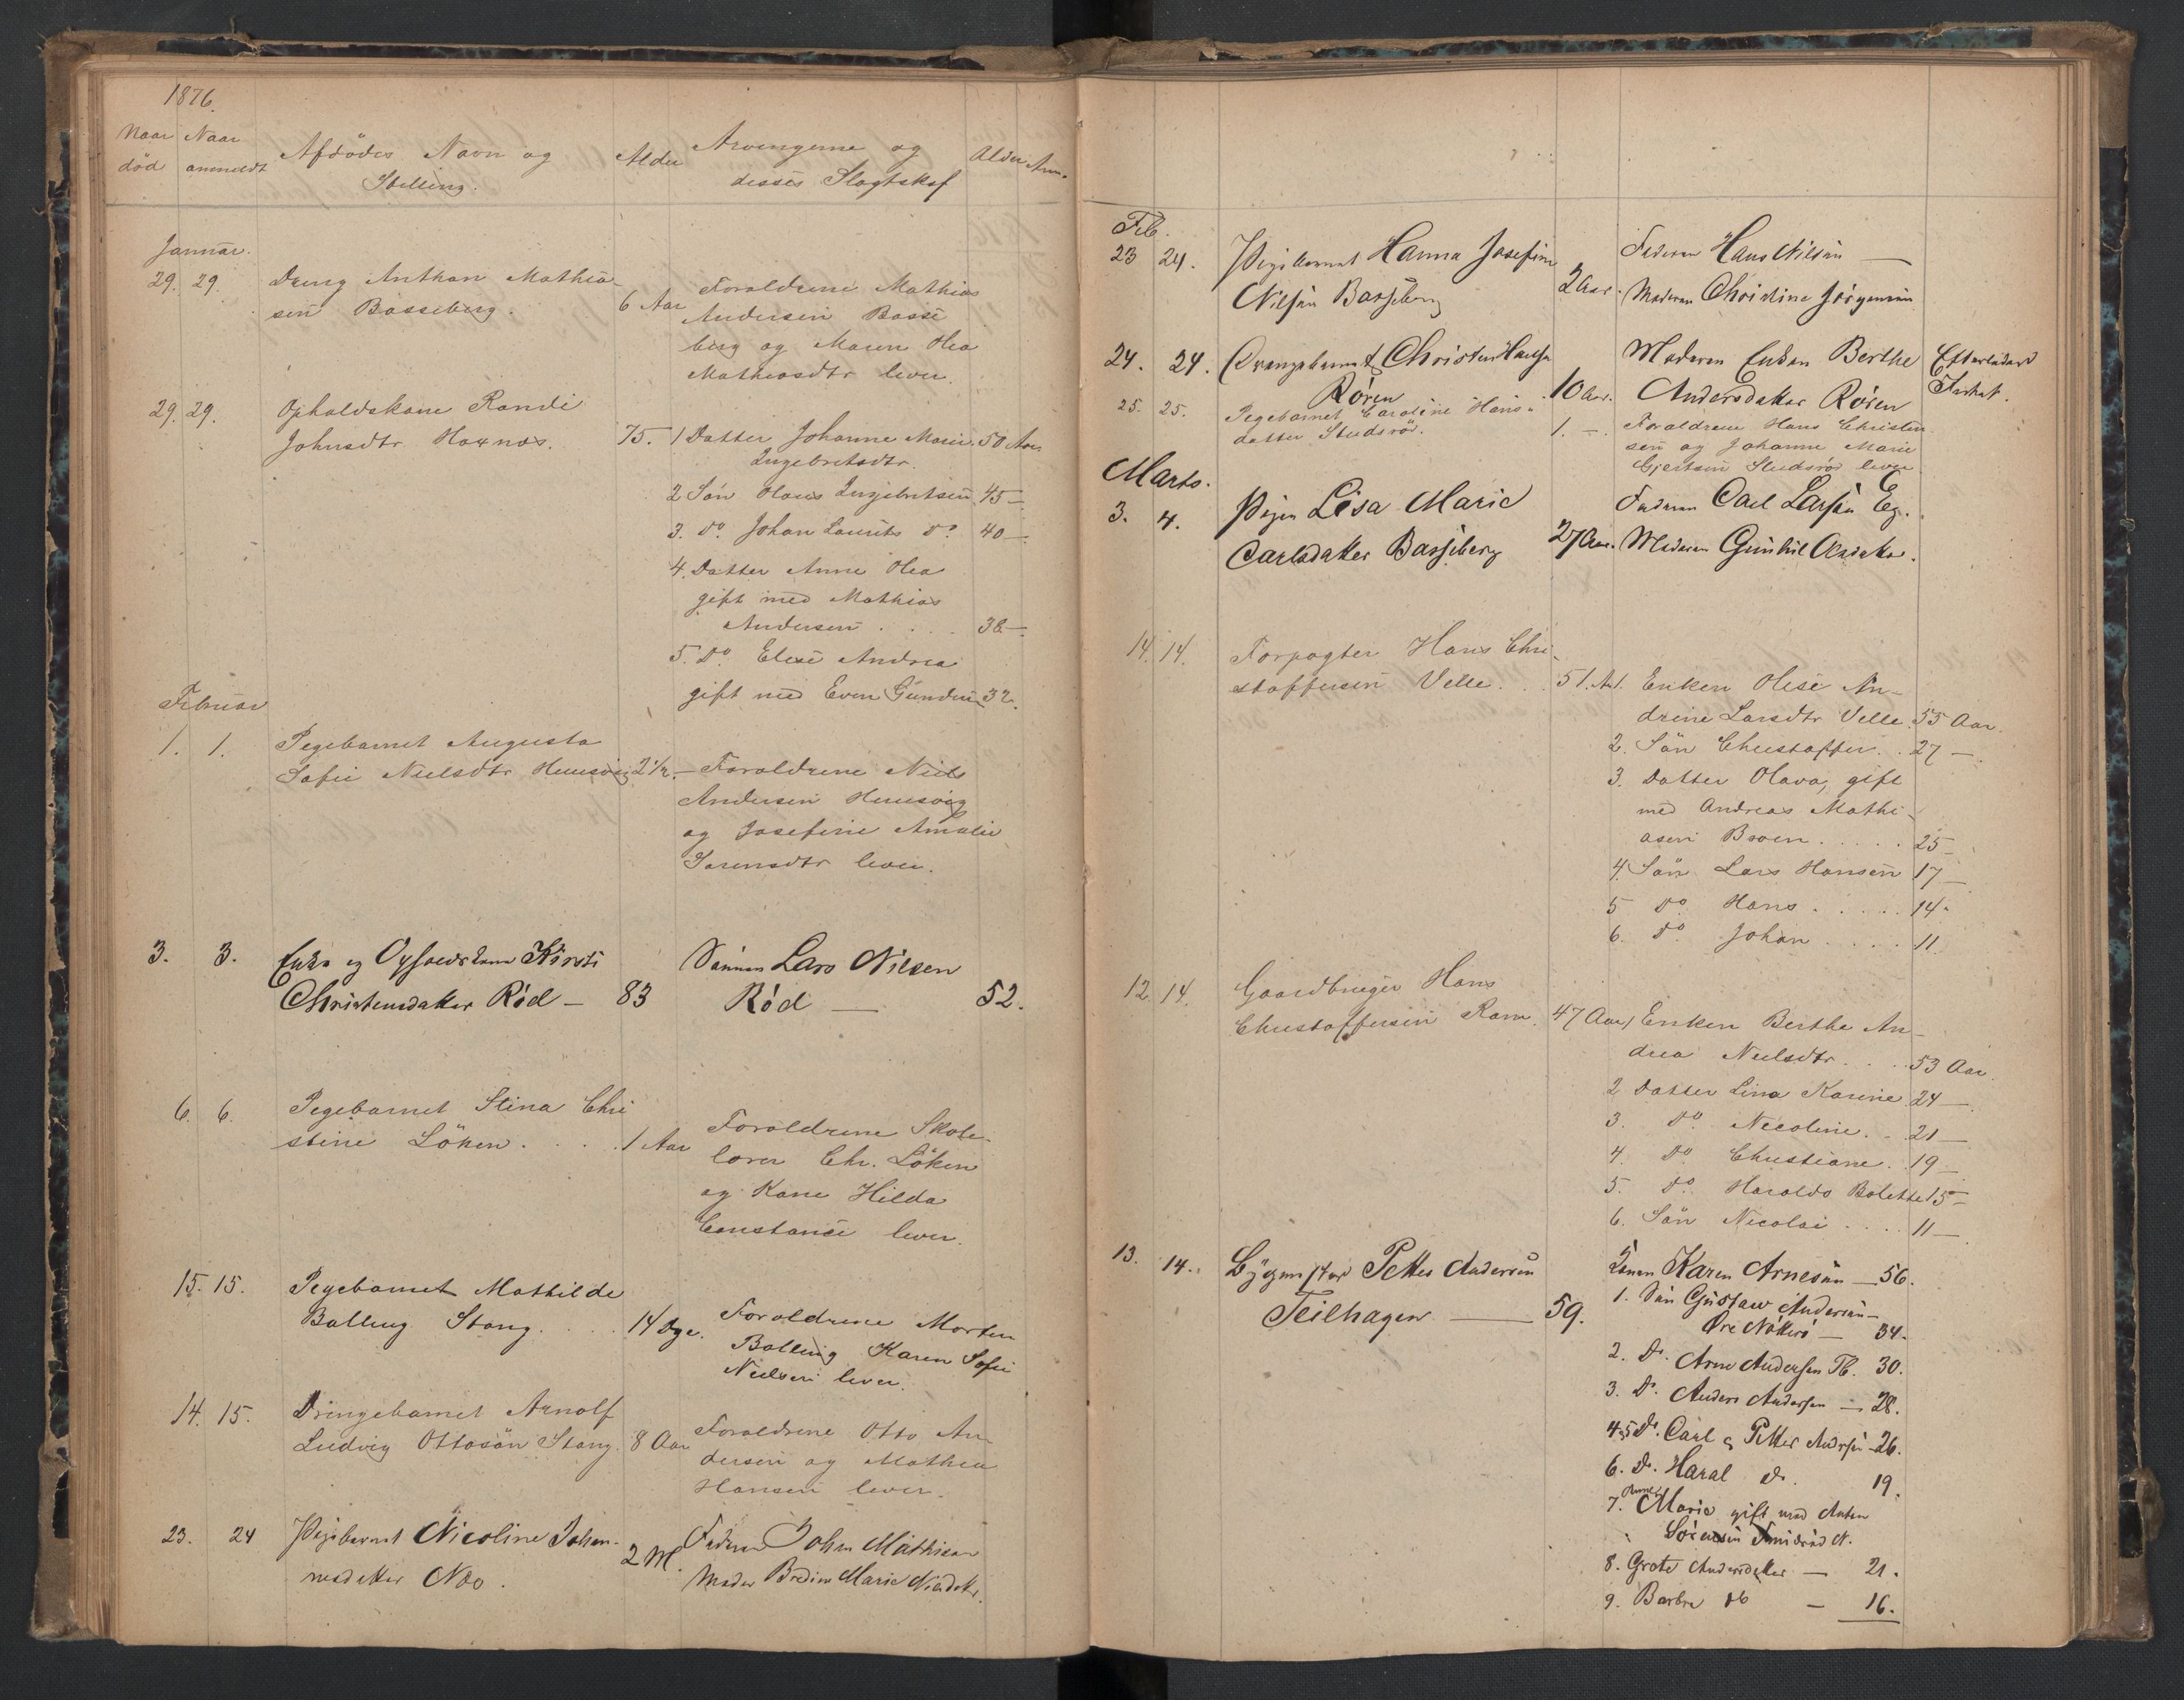 1876.
Naar Naar Afdödes Navn og Alder Arvingerne og Alder Anm.
död anmeldt Stilling. disses Slægtskaf
Januar.
29. 29. Dreng Anthon Mathia-
sen Basseberg. 6 Aar Forældrene Mathias
Andersen Basse
berg og Maren Olea
Mathiasdtr lever.
29. 29. Opholdskone Randi
Johnsdtr Haxnæs. 75. 1 Datter Johanne Marie 50 Aar
Ingebretsdtr.
2 Sön Olaus Ingebretsen 45 —
3. Do. Johan Laurits Do 40 —
4. Datter Anne Olea
gift med Mathias
Andersen . . . . 38 —
5. Do. Elise Andrea
gift med Even Gundersen 32.
Februar
1. 1. Pigebarnet Augusta
Sofie Nielsdtr 2 1/2. — Forældrene Niels
Andersen
og Josefine Amalie
Sörensdtr lever.
3. 3. Enke og Opholdskone Kirsti
Christensdatter Röd — 83 Sönnen Lars Nilsen
Röd — 52.
6. 6. Pigebarnet Stina Chri
stine Löken . . . 1 Aar Forældrene Skole-
lærer Chr. Löken
og Kone Hilda
Constance lever.
15. 15. Pigebarnet Mathilde
Balling Stang. . . 14 Dge. Forældrene Morten
Balling Karen Sofie
Nielsen lever.
14. 15. Drengebarnet Arnolf
Ludvig Ottosön Stang. 8 Aar Forældrene Otto An-
dersen og Mathea
Hansen lever.
23. 24 Pigebarnet Nicoline Johan-
nesdatter Næs. 2 M. Faderen John Mathisen
Moder Bredine Marie Nilsdtr.
Feb.
23 24. Pigebarnet Hanna Josefine
Nilsen Basseberg 2 Aar. Faderen Hans Nilsen —
Moderen Christine Jörgensen
24. 24. Drengebarnet Christen Hansen
Rören 10 Aar. Moderen Enken Berthe Efterladend
Andersdatter Rören
25. 25. Pigebarnet Caroline Hans-
datter Studsröd. 1. — Forældrene Hans Christen
sen og Johanne Marie
Gjertsen Studsröd lever
Marts.
3. 4. Pigen Lisa Marie
Carlsdatter Basseberg 27 Aar. Faderen Carl Larsen Eg.
Moderen Gunhil Olsdatter.
14. 14. Forpagter Hans Chri-
stoffersen Velle. . 51. Aar 1. Enken Olise An-
drine Larsdtr Velle 55 Aar.
2. Sön Christoffer . . 27 —
3. Datter Olava, gift
med Andreas Mathi-
asen Broen . . . . . 25
4. Sön Lars Hansen 17 —
5 Do Hans . . . . . 14 -
6. Do Johan . . . . 11.
12. 14. Gaardbruger Hans
Christoffersen Ram 47 Aar 1 Enken Berthe An-
drea Nielsdtr . . . 53 Aar.
2. Datter Lina Karine 24 —
3. Do. Nicoline . . 21 —
4. Do Christiane . 19 —
5. Do. Haralda Bolette 15 —
6. Sön Nicolai . . . . 11 —
13. 14. Petter Andersen
Teilhagen — 59. Konen Karen Arnesen — 56.
1. Sön Gustaw Andersen —
34.
2. Do. Arne Andersen Th. 30.
3. Do. Anders Andersen — 28.
4 & 5 Do. Carl & Petter Andersen — 26.
6. Do. Haral Do. 19.
7. Anne Marie gift med Anton
Sörensen N.
8. Grete Andersdatter — 21.
9. Barbra Do — 16.